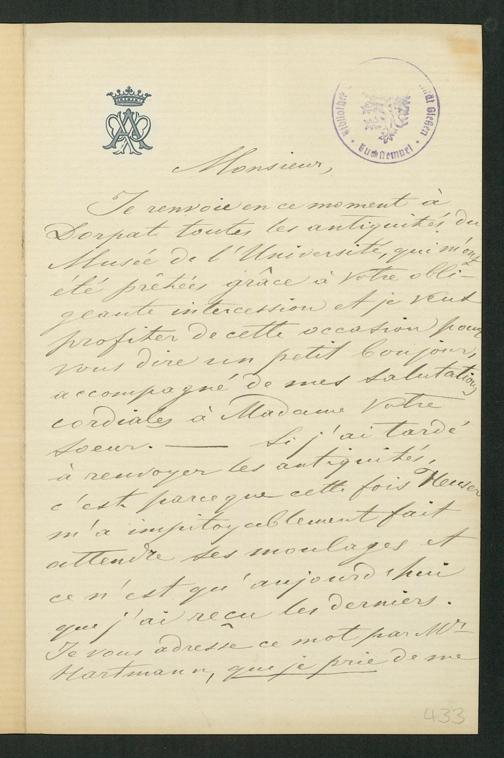 Monsieur,
Je renvoie en ce moment à
Dorpat toutes les antiquités du
Musée de l'Université, qui m'ont
été prêtées grâce à votre obli-
geante intercession et je veux
profiter de cette occasion pour
vous dire un petit bonjour,
accompagné de mes salutations
cordiales à Madame Votre
Soeur. — Si j'ai tardé
à renvoyer les antiquités,
c'est parceque cette fois Heuser
m'a impitoyablement fait
attendre ses moulages et
ce n'est qu'aujourd'hui
que j'ai reçu les derniers.
Je vous adresse ce mot par Mr
Hartmann, que je prie de me
433